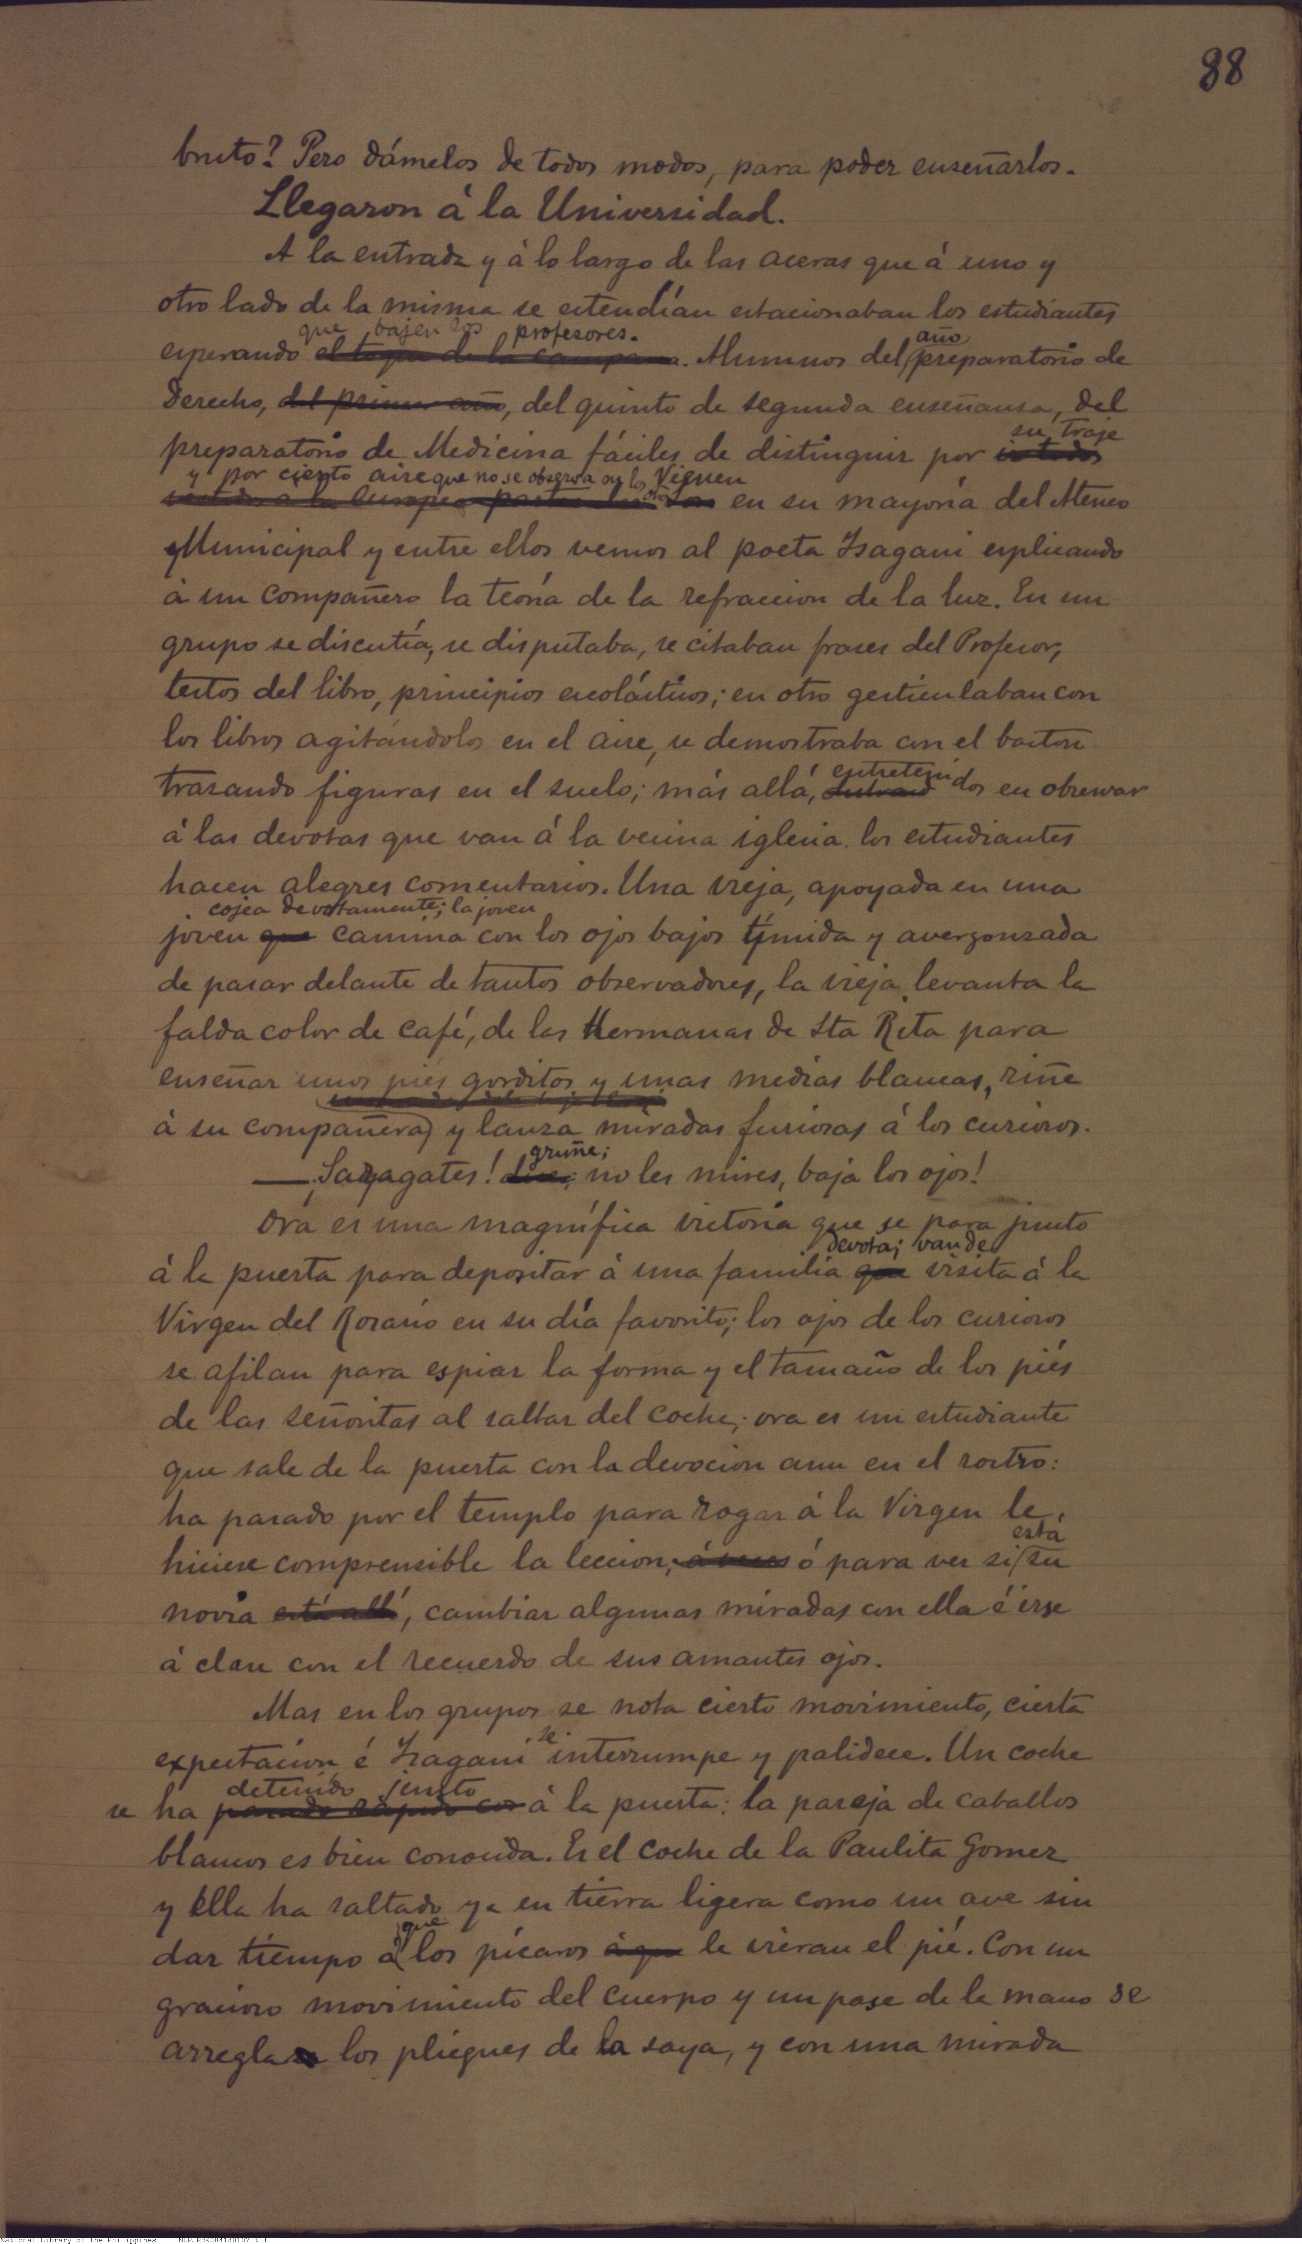 88
bruto? Pero dámelos de todos modos, para poder enseñarlos.
Llegaron á la Universidad.
A la entrada y á lo largo de las aceras que á uno y
otro lado de la misma se estendían estacionaban los estudiantes
que bajen los profesores. año
esperando el toque de la campana. Alumnos del preparatorio de
Derecho, del primer año, del quinto de segunda enseñansa, del
su traje
preparatorio de Medicina fáciles de distinguir por
y por cierto aire que no se observa en los otros Vienen
en su mayoría del Ateneo
Municipal y entre ellos vemos al poeta Isagani esplicando
á un compañero la teoría de la refraccion de la luz. En un
grupo se discutía, se disputaba, se citaban frases del Profesor,
testos del libro, principios escolásticos; en otro gesticulaban con
los libros agitándolos en el aire, se demostraba con el baston
entreteni
trasando figuras en el suelo; más allá, dos en observar
á las devotas que van á la vecina iglesia. los estudiantes
hacen alegres comentarios. Una vieja, apoyada en una
cojea devotamente; la joven
joven que camina con los ojos bajos tímida y avergonzada
de pasar delante de tantos observadores, la vieja levanta la
falda color de café, de las Hermanas de Sta Rita para
enseñar unos piés gorditos y unas medias blancas, riñe
á su compañera y lanza miradas furiosas á los curiosos.
gruñe;
—¡Saragates! dice; no les mires, baja los ojos!
Ora es una magnífica victoria que se para junto
devota; van de
á la puerta para depositar á una familia que visita á la
Virgen del Rosario en su día favorito; los ojos de los curiosos
se afilan para espiar la forma y el tamaño de los piés
de las señoritas al saltar del coche; ora es un estudiante
que sale de la puerta con la devocion aun en el rostro:
ha pasado por el templo para rogar á la Virgen le
está
hiciese comprensible la leccion, á veces ó para ver si su
novia está allí, cambiar algunas miradas con ella é irse
á clase con el recuerdo de sus amantes ojos.
Mas en los grupos se nota cierto movimiento, cierta
se
expectacion é Isagani interrumpe y palidece. Un coche
detenido junto
se ha parado rápido á la puerta: la pareja de caballos
blancos es bien conocida. Es el coche de la Paulita Gomez
y ella ha saltado ya en tierra ligera como un ave sin
que
dar tiempo á los pícaros á que le vieran el pié. Con un
gracioso movimiento del cuerpo y un pase de la mano se
arregla los pliegues de la saya, y con una mirada